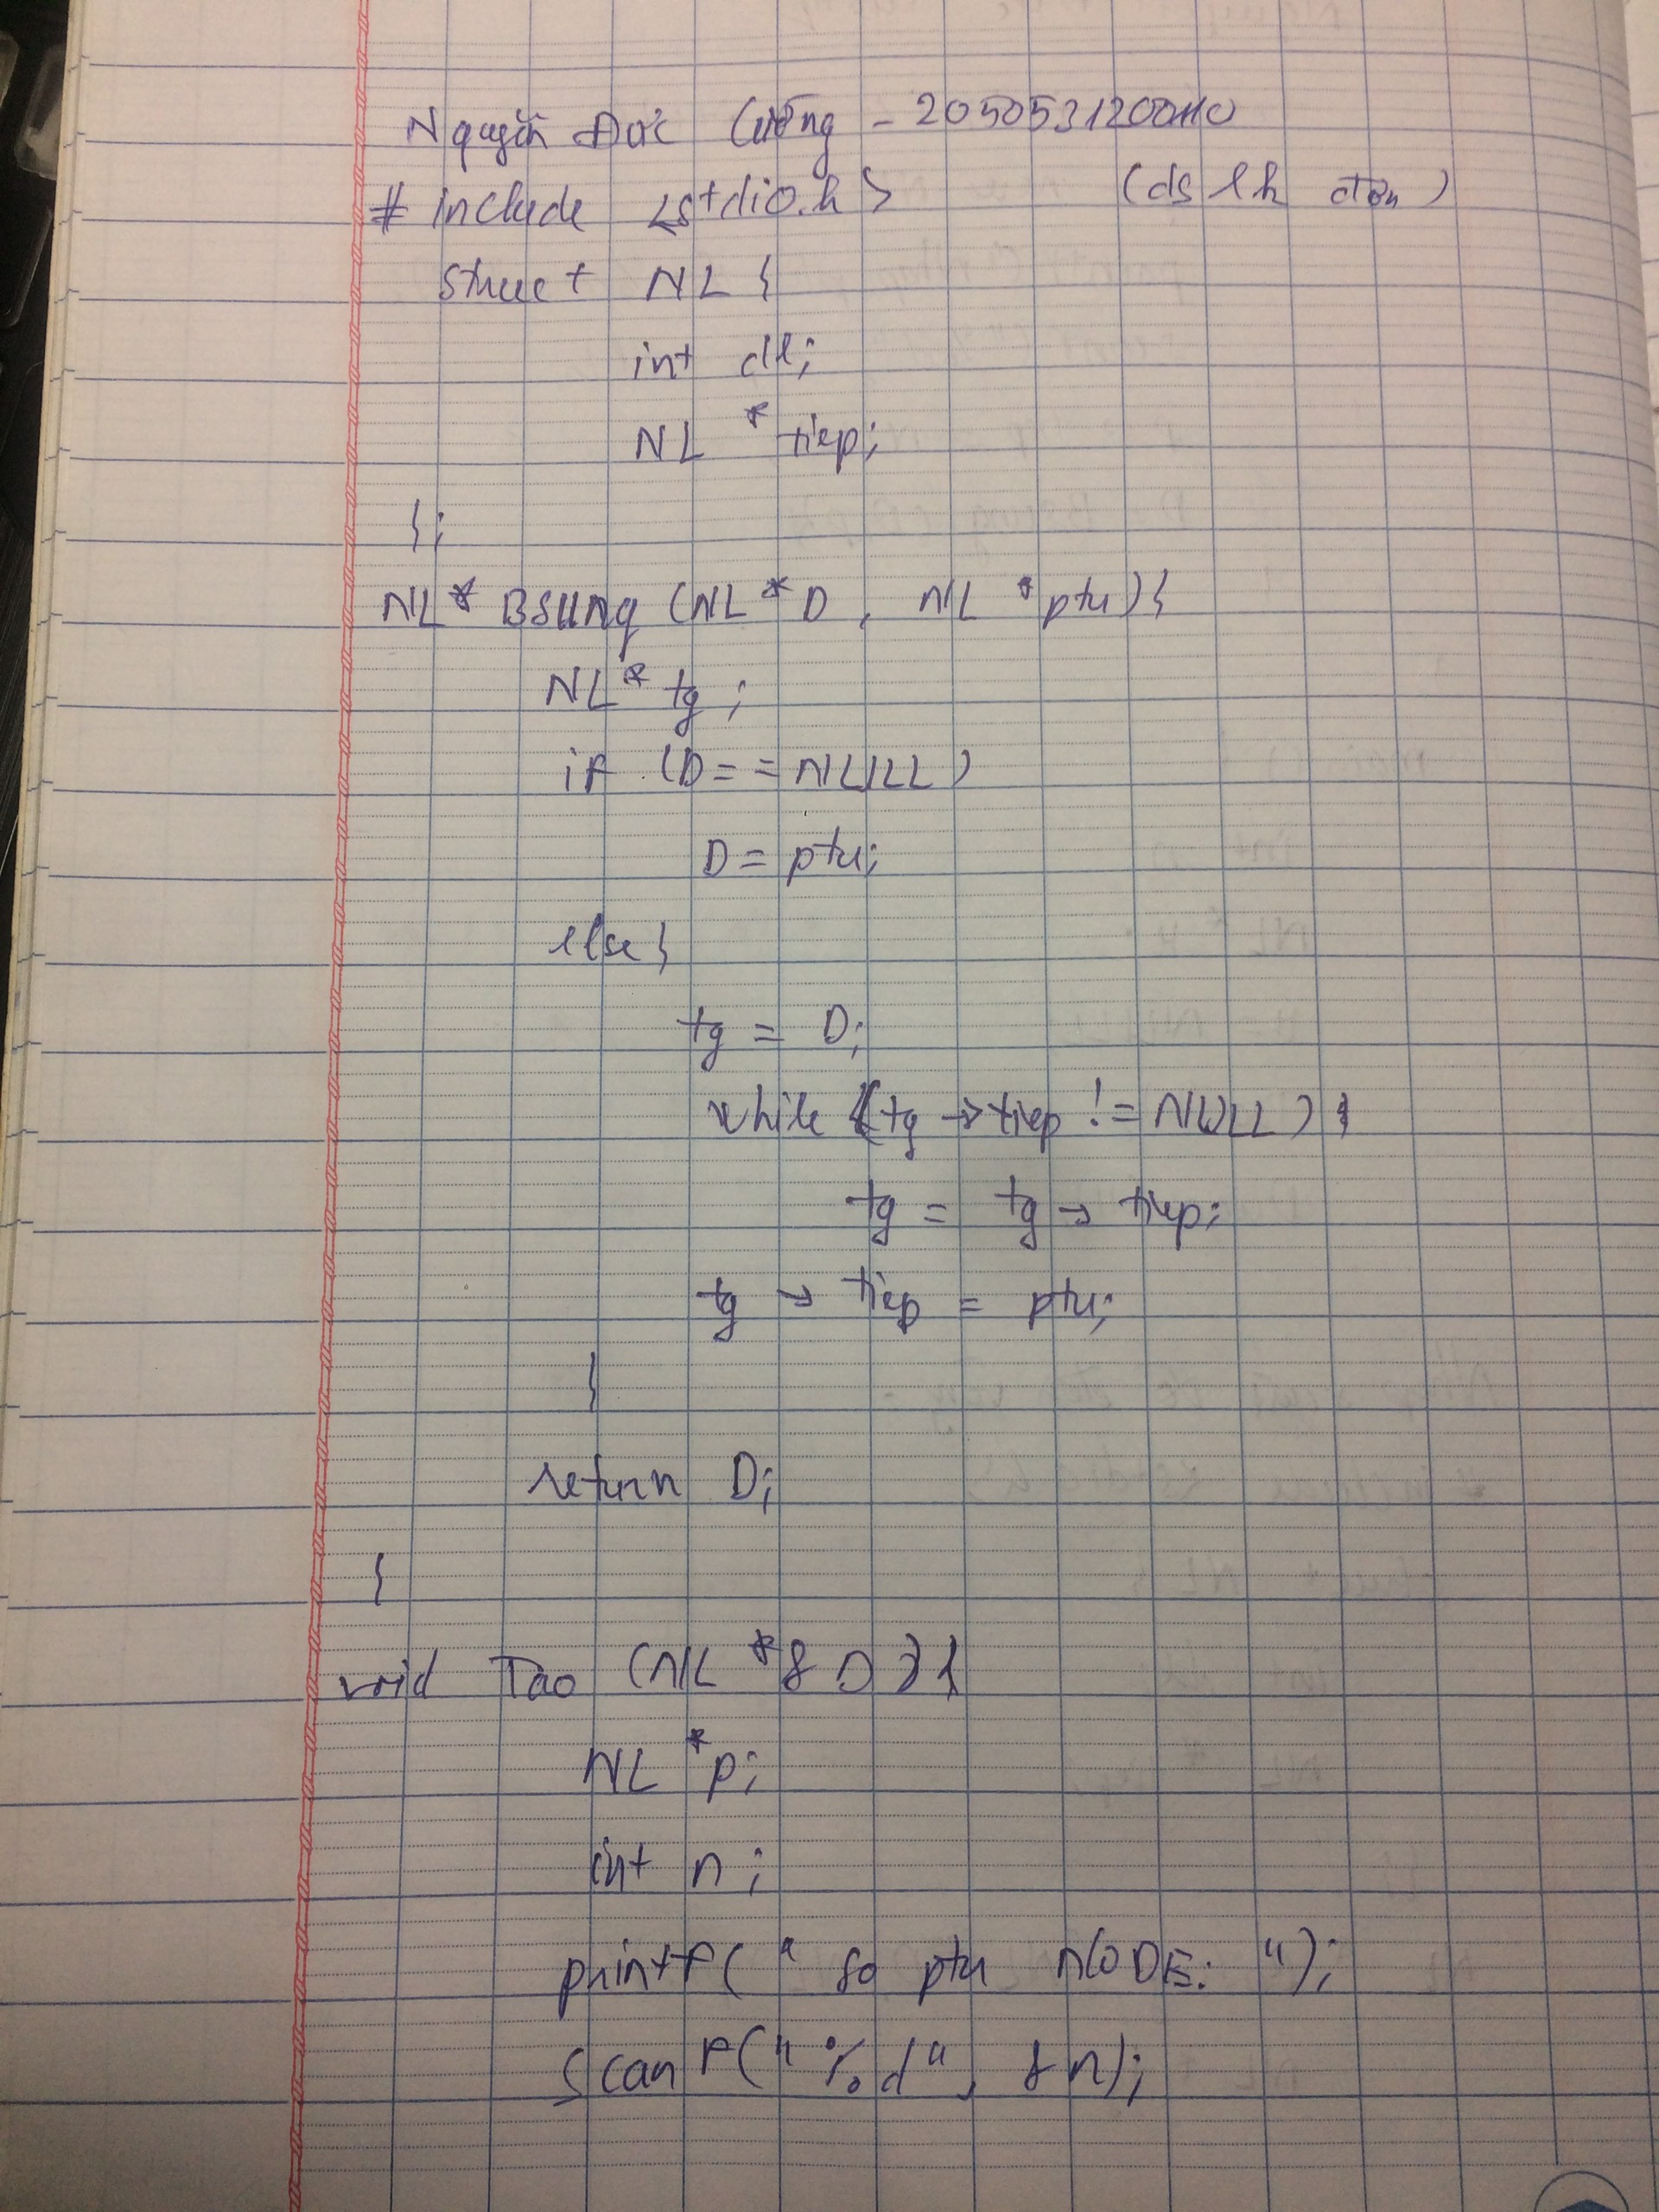 Nguyễn Đức Cường - 2050531200110
#include <stdio.h> (ds lk đơn)
struct NL {
int dl;
NL * tiep;
};
NL* BSung (NL *D, NL *ptu) {
NL* tg;
if (D == NULL)
D = ptu;
else {
tg = D;
while (tg -> tiep != NULL) {
tg = tg -> tiep;
tg -> tiep = ptu;
}
return D;
}
void Tao (NL *& D) {
NL *p;
int n;
printf(" so ptu NODE: ");
scanf("%d", &n);